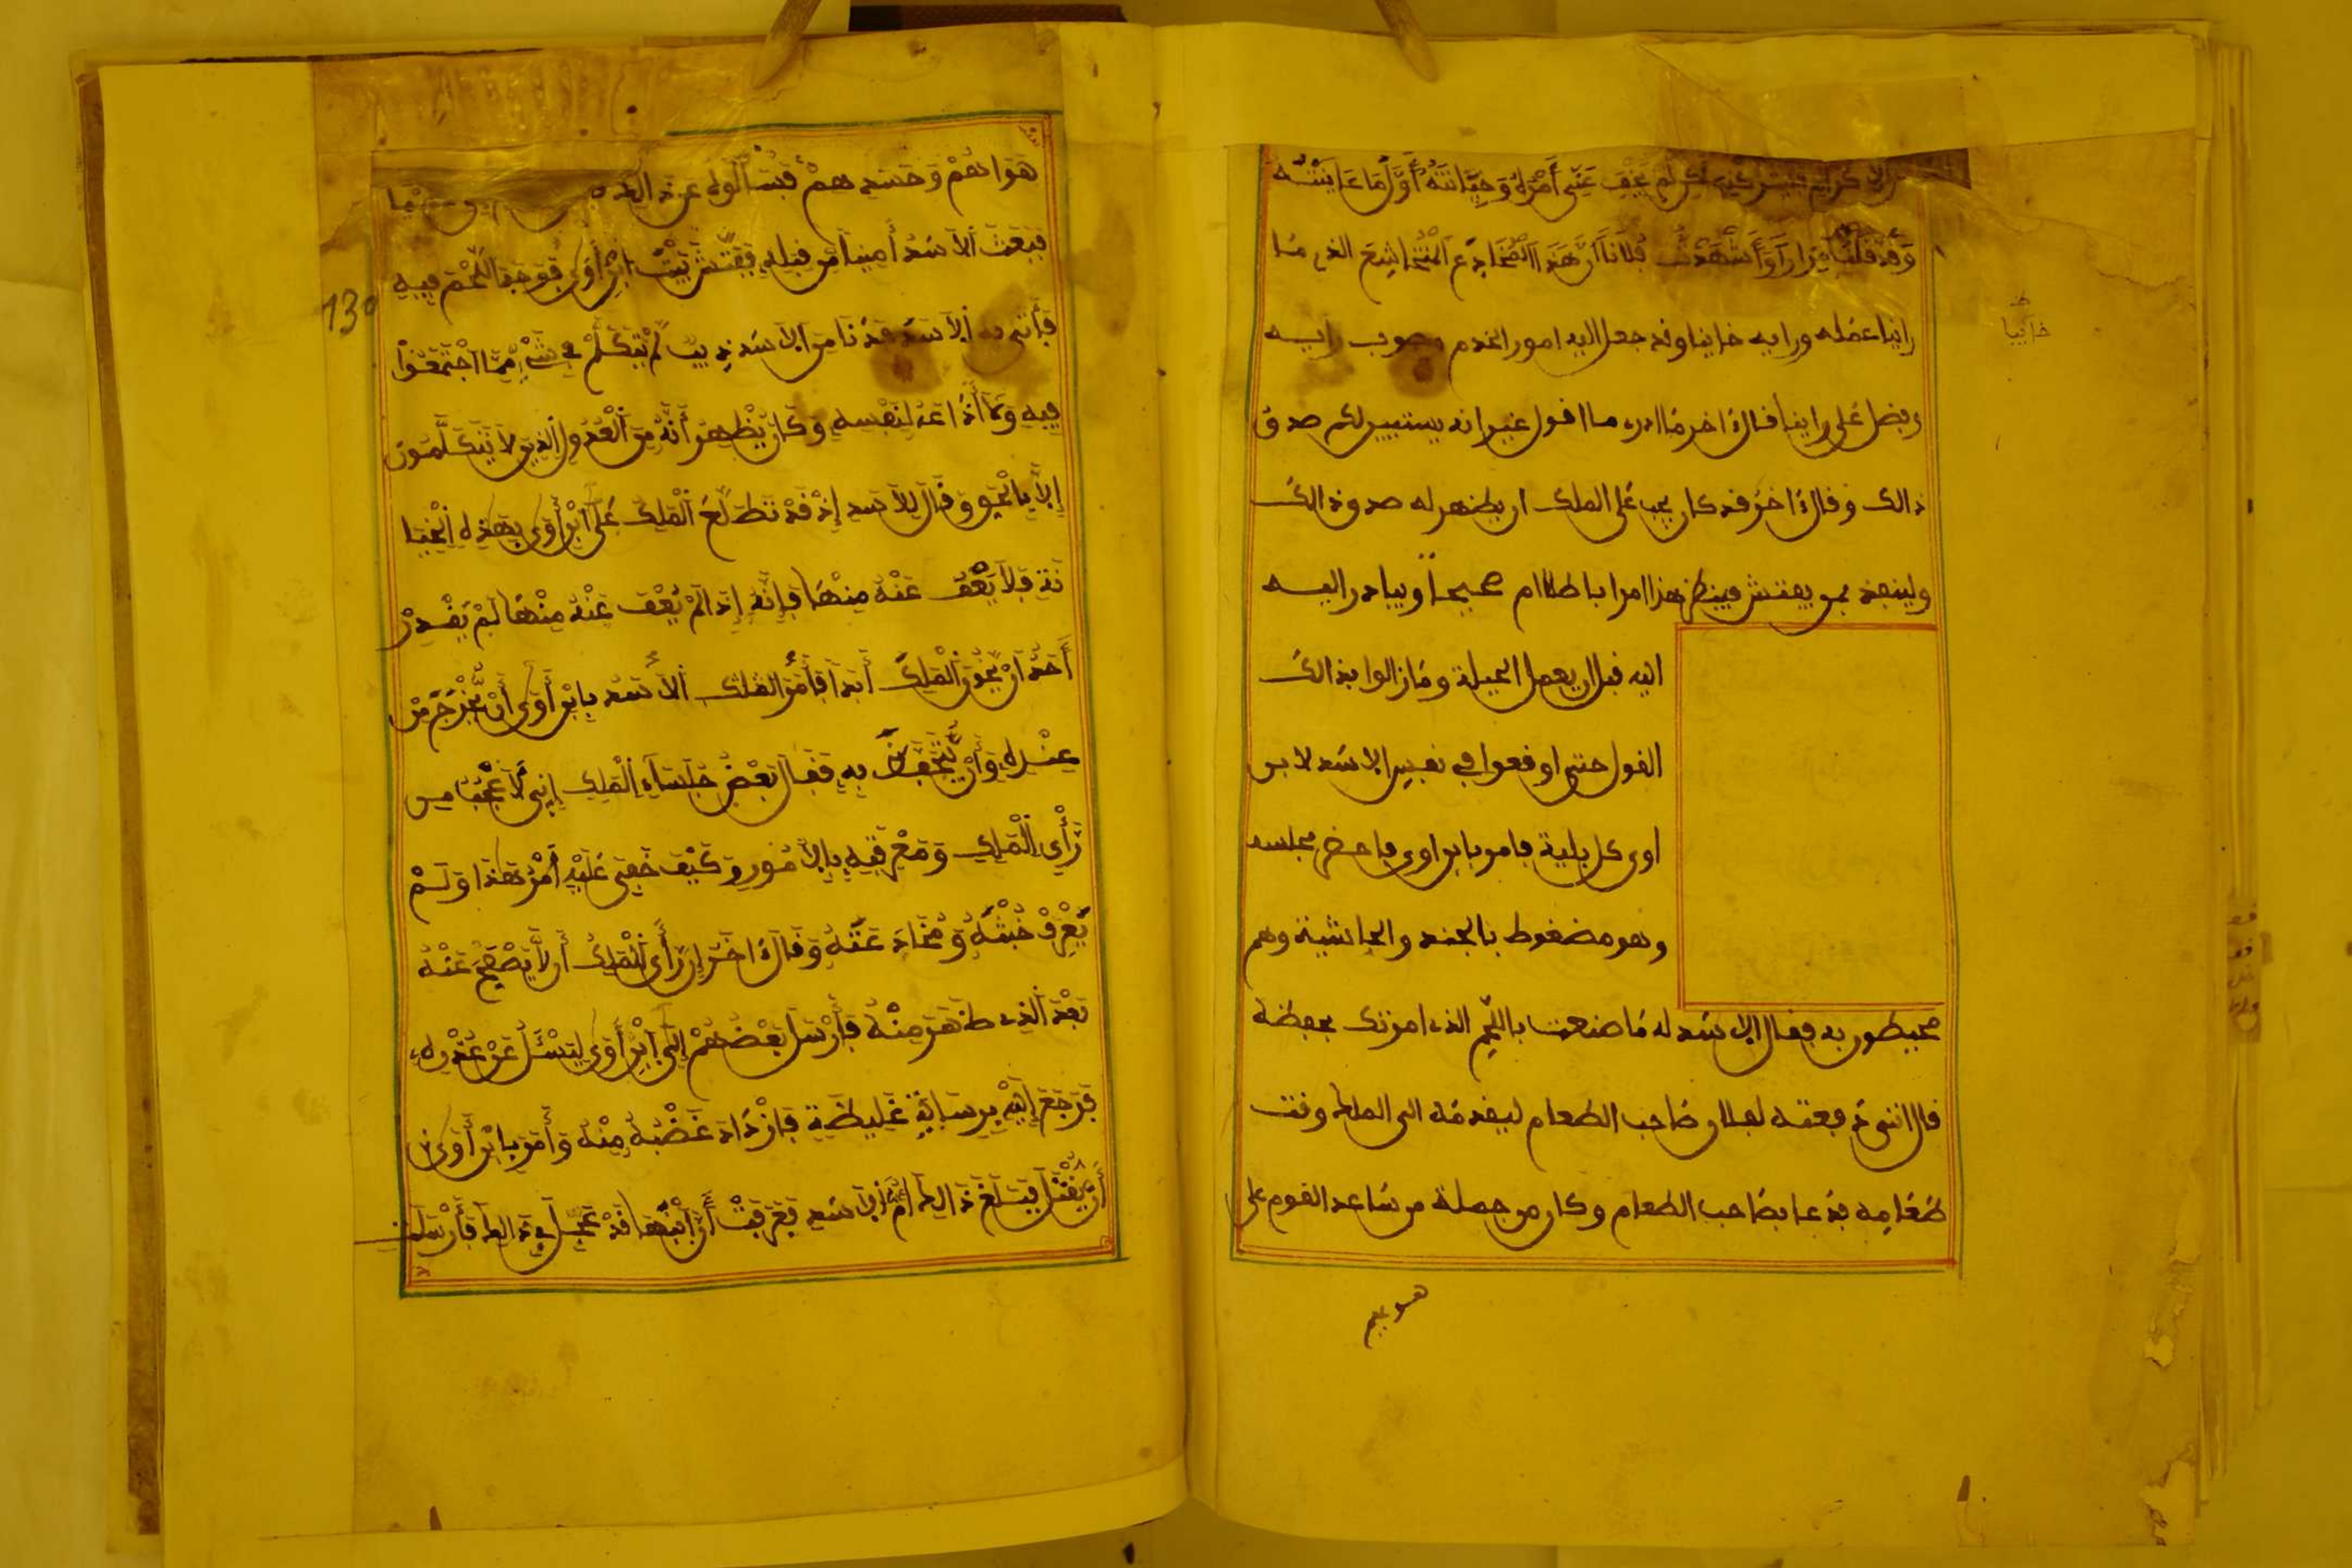 لم يخف عني أمره وخيانته أول ما عاينته
وقد قلت مرارا وأشهدت فلانا أن هذا المخادع المتخاشع الذي ما
راينا عمله ورايه خاينا وقد جعل اليه امور الخدم وصوب رايه
وفضل على راينا فقال ءاخر ما ادري ما اقول غير انه يستبين لكم صدق
ذالك وقال ءاخر قد كان يجب على الملك ان يظهر له صدق ذالك
ولينفذ بمن يفتش فينظر هذا امرا باطلا ام صحيحا ويبادر اليه
اليه قبل ان يعمل الحيلة وما زالوا بذالك
القول حتى اوقعوا في نفس الاسد لابن
اوى كل بلية فامر بابن اوى فاحضر مجلسه
وهو مضغوط بالجند والحاشية وهم
محيطون به فقال الاسد له ما صنعت باللحم الذي امرتك بحفظه
قال انني دفعته لفلان صاحب الطعام ليقدمه الى الملك وقت
طعامه فدعا بصاحب الطعام وكان من جملة من ساعد القوم على
خاينا
هواهم
هواهم وحسدهم فسألوه عن ذالك
فبعث الأسد أمينا من قبله ففتش بيت ابن أوى فوجد اللحم فيه
فأتى به الأسد فدنا من الأسد ذيب لم يتكلم في شيء مما اجتمعوا
فيه ولا أذاعه لنفسه وكان يظهر أنه من العدول الذين لا يتكلمون
إلا بالحق وقال للأسد إذ قد تطلع الملك على ابن أوى بهذه الخيا
نة فلا يعف عنه منها فإنه إذا لم يعف عنه منها لم يقدر
أحد أن يخون الملك أبدا فأمر الملك الأسد بابن أوى أن يخرج من
عنده وأن يتحفظ به فقال بعض جلساء الملك إني لأعجب من
رأي الملك ومعرفته بالأمور وكيف خفي عليه أمر هذا ولم
يعرف خبثه ومخادعته وقال ءاخر إن رأى الملك أن لا يصفح عنه
بعد الذي ظهر منه فأرسل بعضهم إلى ابن أوى ليسأل عن عذره
فرجع إليه برسالة غليظة فازداد غضبه منه وأمر بابن أوى
أن يقتل فبلغ ذالك أم الأسد فعرفت أن ابنها قد عجل في ذالك فأرسلت
130